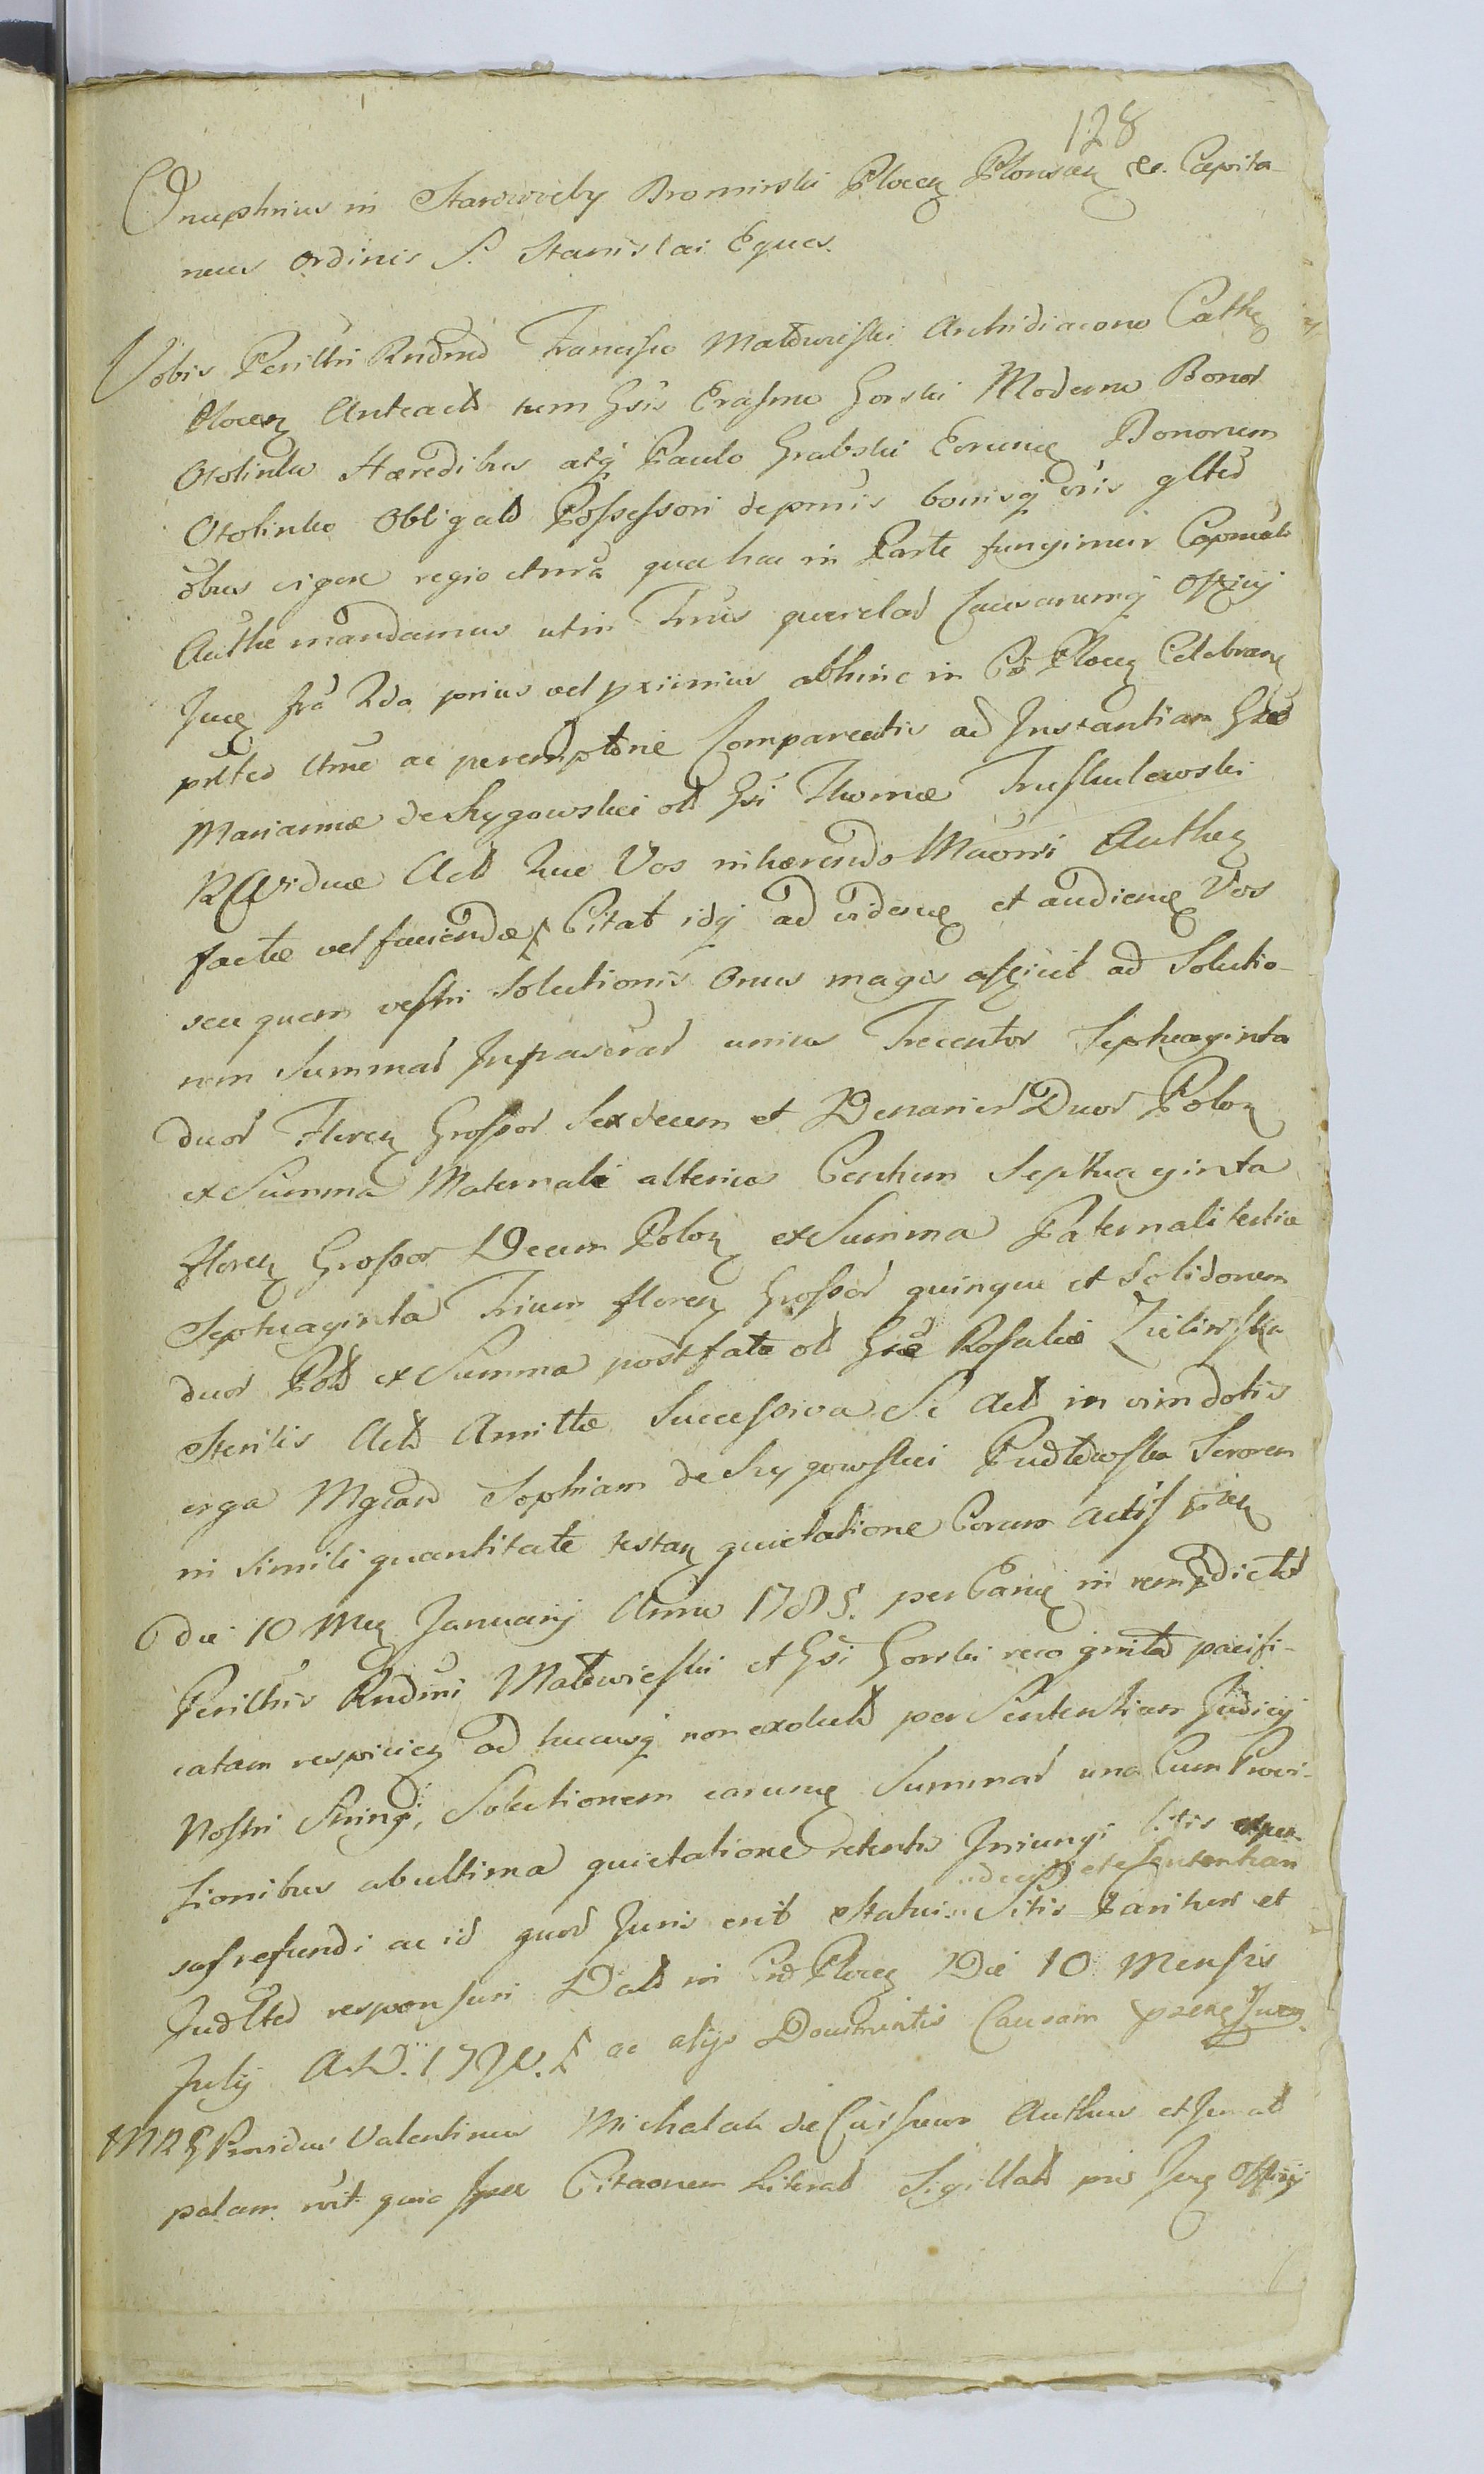 128
Onuphrius in Starorzeby Bromirski Plocen Plonscen &c. Capita-
neus Ordinis S. Stanislai Eques.
Vobis Perillri Rndmo Francisco Matdzieski Archidiacono Cathe
Plocen Anteact tum Gsis Erasmo Gorski Moderno Bonor
Otolinko Hæredibus atq Paulo Grabski Eorunq Bonorum
Otolinko Obligat Possessori de psnis bonisq vris glted
obus vigore regio et nra qua hac in Parte fungimur Capneali
Authe mandamus ut in Trnis querelar Causarumq Officij
Jnq fra 2da prius vel pximius abhinc in Co Plocen Celebran
pnlted ltme ac peremptorie Compareatis ad Instantiam Gsæ
Mariannæ de Rygowskie olt Gsi Thomæ Truskulewski
R Viduæ Act Quæ Vos inhærendo Maonis Authen
factæ vel faciendæ Citat idq ad videnq et audienq Vos
seu quem vestri Solutionis Onus magis afficit ad Solutio-
nem Summar Infrascrar unius Trecentor Septuaginta
duor Floren Grossor Sexdecem et Denarior Duor Polon
ex Summa Maternali alterius Centum Septuaginta
floren Grossor Decem Polon ex Summa Paternali tertiæ
Septuaginta Trium floren Grossor quinque et Solidorum
duor Pol ex Summa post fata olt Gsæ Rosaliæ Zielinska
Sterilis Act Amittæ Successiva Se Act in vim dotis
erga Mgcam Sophiam de Rygowskie Pudłowska Sororem
in simili quantitate testan quietatione Coram Actis
die 10 Men Januarij Anno 1785. per Eanq in rem dictor
Perillris Rndmi Matdzieski et Gsi Gorski recognita pacifi-
catam respicien ad hucusq non exolut per Sententiam Judicij
Nostri Stringi, Solutionem earunq Summar una Cum Provi-
sionibus ab ultima quietatione retentis Injungi litis expen-
sas refundi ac id quod Juris erit statui Sitis Parituri et
decisi et Sententiam
Judlted responsuri Dat in Co Plocen Die 10 Mensis
Julij A.D. 179 ac alijs Documentis Causam
MRS Providus Valentinus Michalak de Authus et Jurat
palam rcit quia Citaonem Literal Sigillat pns Offij